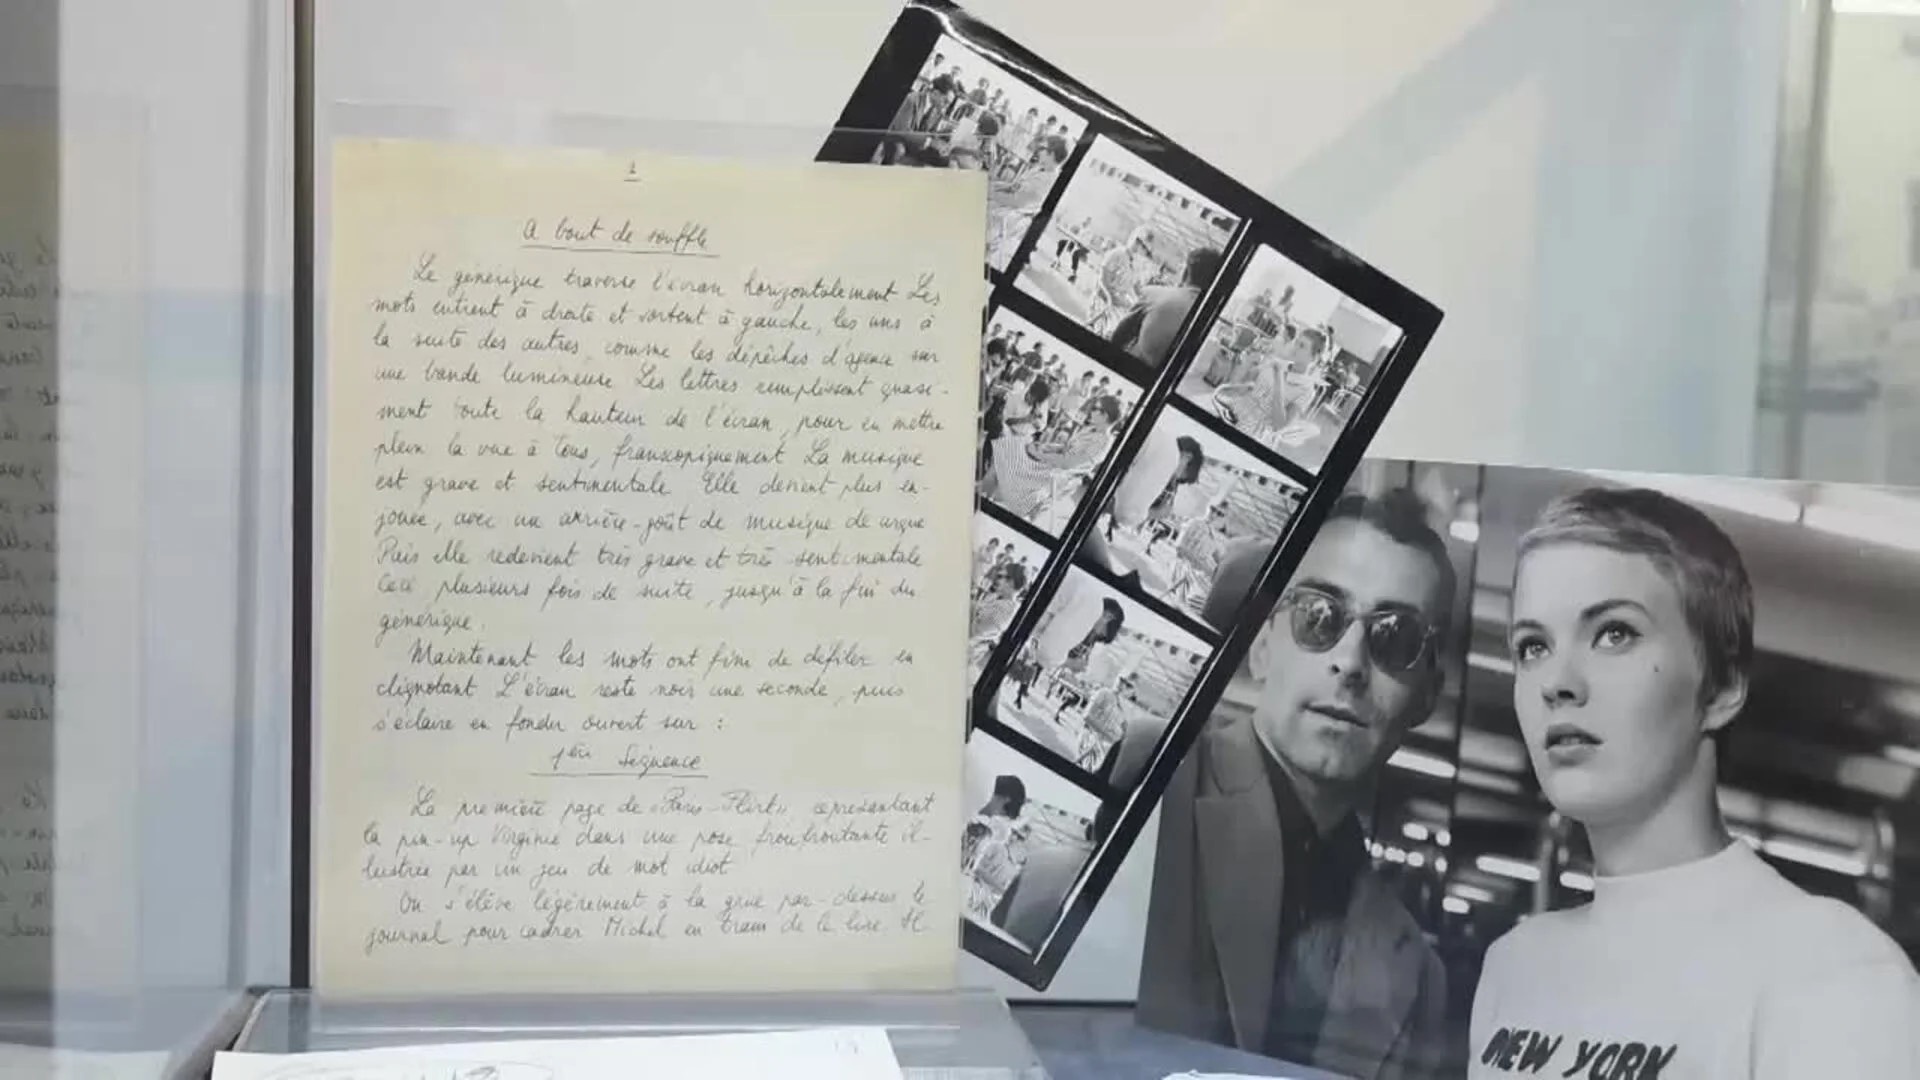 1
A bout de souffle
Le générique traverse l'écran horizontalement Les
mots entrent à droite et sortent à gauche, les uns à
la suite des autres, comme les dépêches d'agence sur
une bande lumineuse Les lettres remplissent quasi-
ment toute la hauteur de l'écran, pour en mettre
plein la vue à tous, franscopiquement La musique
est grave et sentimentale Elle devient plus en-
jouée, avec un arrière-goût de musique de orgue
Puis elle redevient très grave et très sentimentale
Ceci plusieurs fois de suite, jusqu'à la fin du
générique.
Maintenant les mots ont fini de défiler en
clignotant L'écran reste noir une seconde, puis
s'éclaire en fondu ouvert sur :
1ère Séquence
La première page de «Paris-Flirt» représentant
la pin-up Virginie dans une pose froufroutante il-
lustrée par un jeu de mot idiot
On s'élève légèrement à la grue par-dessus le
journal pour cadrer Michel en train de le lire. Il
NEW YORK